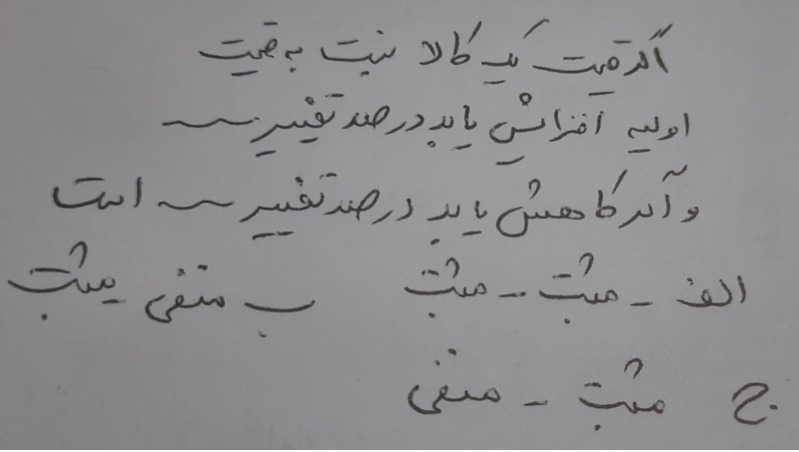 اگر قیمت یک کالا نسبت به قیمت
اولیه افزایش یابد درصد تغییر ~
و اگر کاهش یابد درصد تغییر ~ است
الف - مثبت - مثبت ب منفی مثبت
ج مثبت - منفی